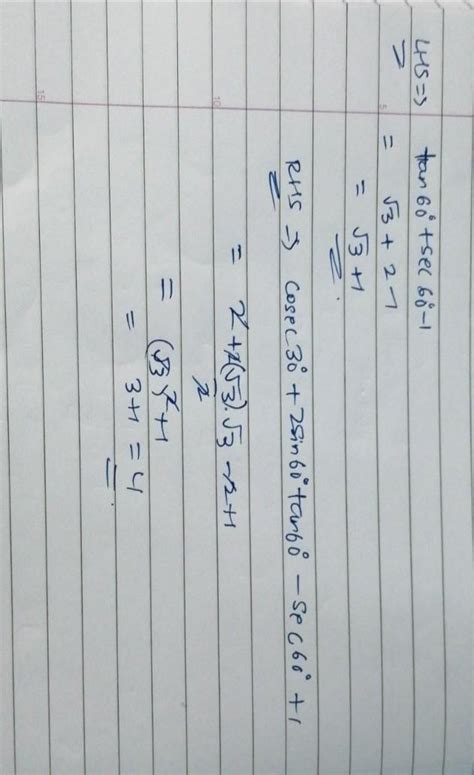 LHS ⇒ tan60° + sec60° - 1
= √3 + 2 - 1
= √3 + 1
RHS → Cosec30° + 2sin60° tan60° - sec60° + 1
= 2 + 2(√3/2).√3 - 2 + 1
= (√3)² + 1
= 3 + 1 = 4
5
10
15